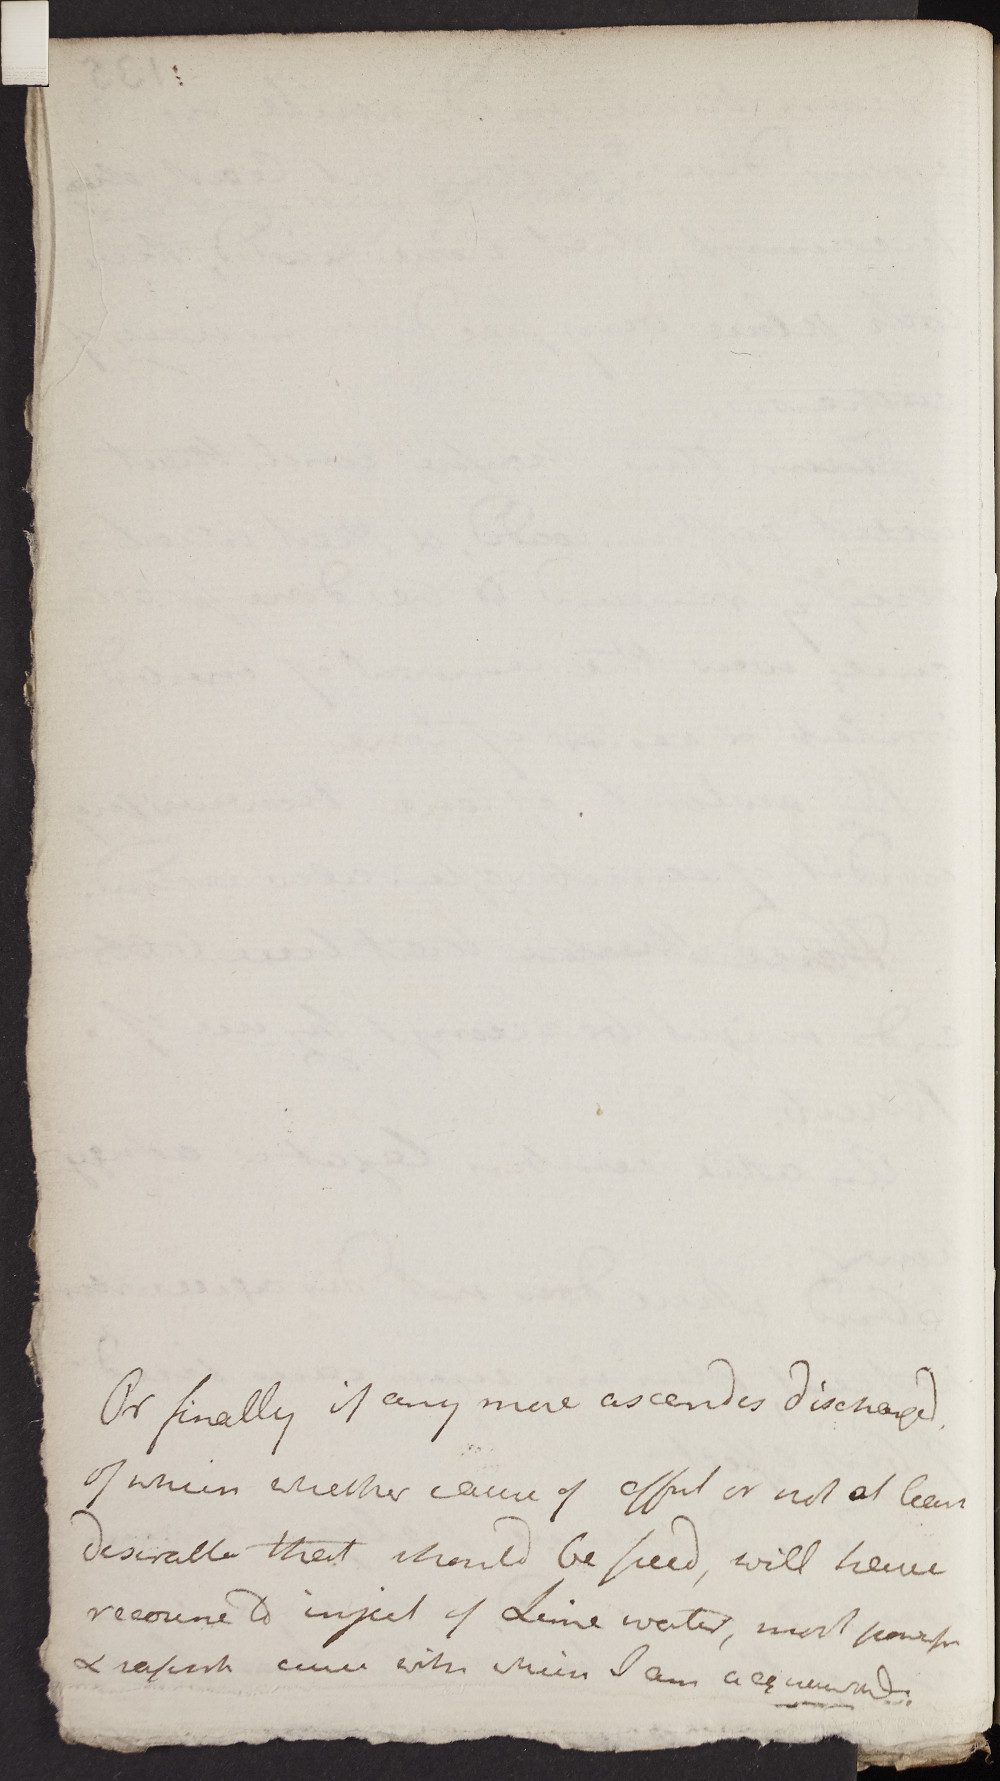 Or finally if any more ascendes discharged,
of which whether cause of effect or not at least
desirable that should be freed, will have
recourse to inject of Lime water, most powerfu
& as cure with which I am acquainted.